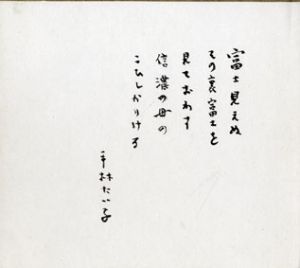 富士見えぬ
その裏富士を
見ておわす
信濃の母の
こひしかりける
平林たい子